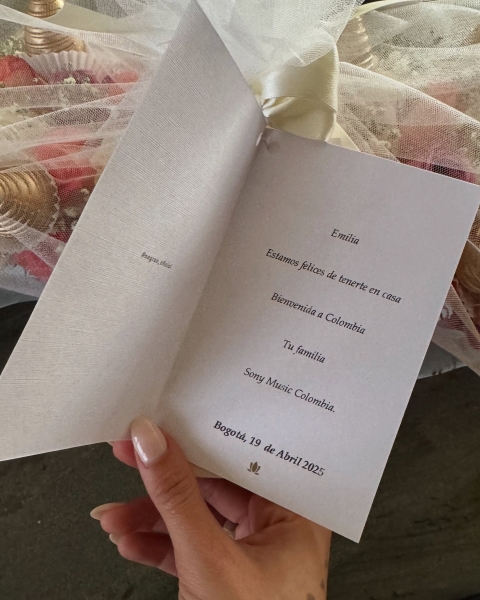 Emilia
Estamos felices de tenerte en casa
Bienvenida a Colombia
Tu familia
Sony Music Colombia.
Bogotá, 19 de Abril 2025